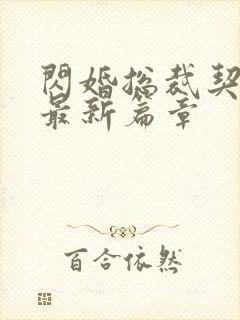 閃婚總裁契
最新篇章
百合依然